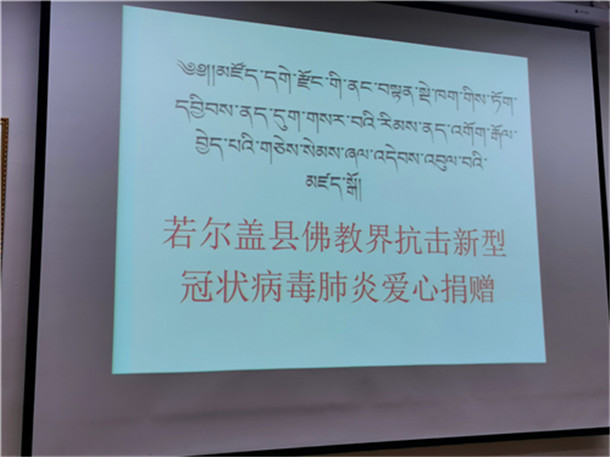 ༄༅།།མཛོད་དགེ་རྫོང་གི་ནང་བསྟན་སྡེ་ཁག་གིས་ཏོག་
དབྱིབས་ནད་དུག་གསར་བའི་རིམས་ནད་འགོག་རྒོལ་
བྱེད་པའི་གཅེས་སེམས་ཞལ་འདེབས་འབུལ་བའི་
མཛད་སྒོ།
若尔盖县佛教界抗击新型
冠状病毒肺炎爱心捐赠